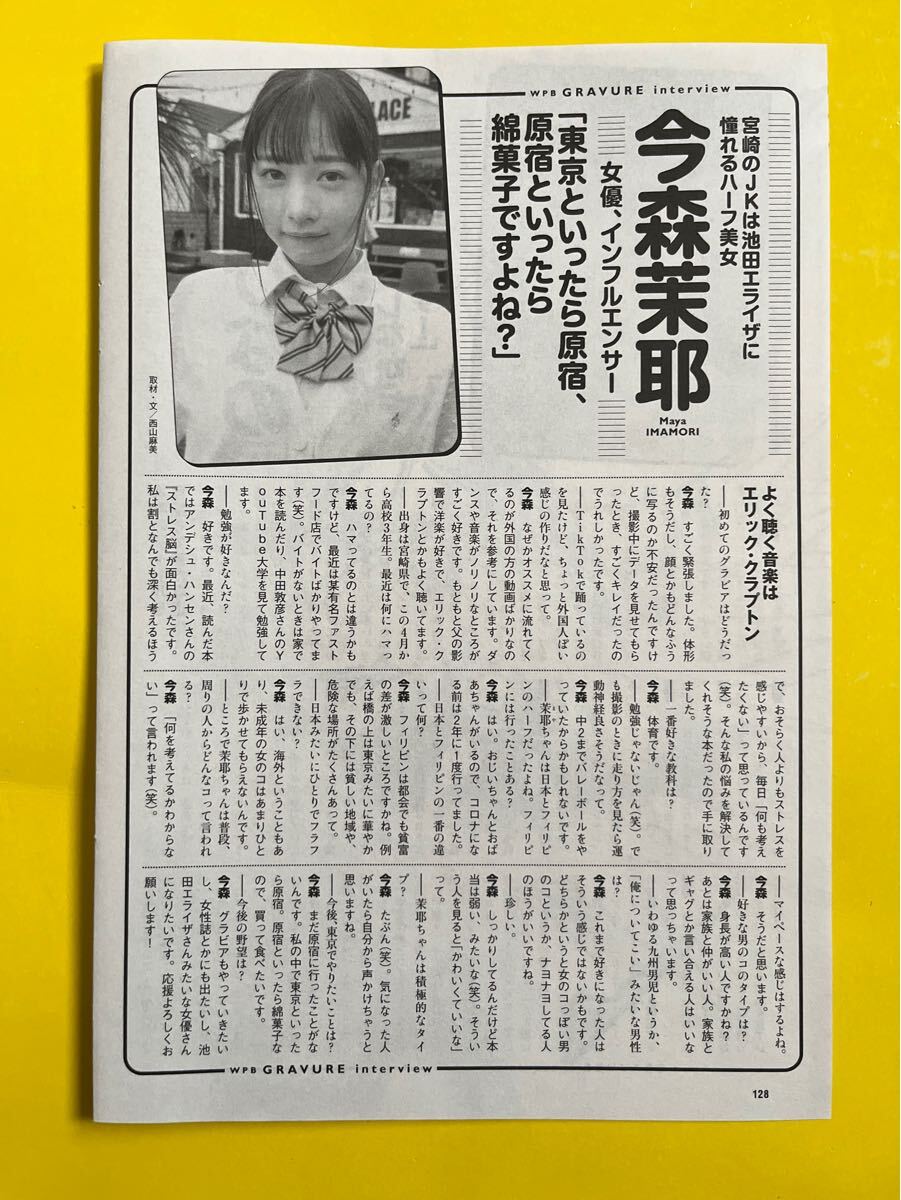 WPB GRAVURE interview
宮崎のJKは池田エライザに
憧れるハーフ美女
今森茉耶
Maya
IMAMORI
女優、インフルエンサー
「東京といったら原宿、
原宿といったら
綿菓子ですよね?」
PLACE
取材・文/西山麻美
よく聴く音楽は
エリック・クラプトン
――初めてのグラビアはどうだっ
た?
今森 すごく緊張しました。体形
もそうだし、顔とかもどんなふう
に写るのか不安だったんですけ
ど、撮影中にデータを見せてもら
ったとき、すごくキレイだったの
でうれしかったです。
――TikTokで踊っているの
を見たけど、ちょっと外国人ぽい
感じの作りだなと思って。
今森 なぜかオススメに流れてく
るのが外国の方の動画ばかりなの
で、それを参考にしています。ダ
ンスや音楽がノリノリなところが
すごく好きです。もともと父の影
響で洋楽が好きで、エリック・ク
ラプトンとかもよく聴いてます。
――出身は宮崎県で、この4月か
ら高校3年生。最近は何にハマっ
てるの?
今森 ハマってるのとは違うかも
ですけど、最近は某有名ファスト
フード店でバイトばかりやってま
す(笑)。バイトがないときは家で
本を読んだり、中田敦彦さんのY
ouTube大学を見て勉強して
ます。
――勉強が好きなんだ?
今森 好きです。最近、読んだ本
ではアンデシュ・ハンセンさんの
『ストレス脳』が面白かったです。
私は割となんでも深く考えるほう
で、おそらく人よりもストレスを
感じやすいから、毎日「何も考え
たくない」って思っているんです
(笑)。そんな私の悩みを解決して
くれそうな本だったので手に取り
ました。
――一番好きな教科は?
今森 体育です。
――勉強じゃないじゃん(笑)。で
も撮影のときに走り方を見たら運
動神経良さそうだなって。
今森 中2までバレーボールをや
っていたからかもしれないです。
――茉耶ちゃんは日本とフィリピ
ンのハーフだったよね。フィリピ
ンには行ったことある?
今森 はい。おじいちゃんとおば
あちゃんがいるので、コロナにな
る前は2年に1度行ってました。
――日本とフィリピンの一番の違
いって何?
今森 フィリピンは都会でも貧富
の差が激しいところですかね。例
えば橋の上は東京みたいに華やか
でも、その下には貧しい地域や、
危険な場所がたくさんあって。
――日本みたいにひとりでフラフ
ラできない?
今森 はい、海外ということもあ
り、未成年の女のコはあまりひと
りで歩かせてもらえないんです。
――ところで茉耶ちゃんは普段、
周りの人からどんなコって言われ
る?
今森 「何を考えてるかわからな
い」って言われます(笑)。
――マイペースな感じはするよね。
今森 そうだと思います。
――好きな男のコのタイプは?
今森 身長が高い人ですかね?
あとは家族と仲がいい人。家族と
ギャグとか言い合える人はいいな
って思っちゃいます。
――いわゆる九州男児というか、
「俺についてこい」みたいな男性
は?
今森 これまで好きになった人は
そういう感じではないかもです。
どちらかというと女のコっぽい男
のコというか、ナヨナヨしてる人
のほうがいいですね。
――珍しい。
今森 しっかりしてるんだけど本
当は弱い、みたいな(笑)。そうい
う人を見ると「かわいくていいな」
って。
――茉耶ちゃんは積極的なタイ
プ?
今森 たぶん(笑)。気になった人
がいたら自分から声かけちゃうと
思いますね。
――今後、東京でやりたいことは?
今森 まだ原宿に行ったことがな
いんです。私の中で東京といった
ら原宿。原宿といったら綿菓子な
ので、買って食べたいです。
――今後の野望は?
今森 グラビアもやっていきたい
し、女性誌とかにも出たいし、池
田エライザさんみたいな女優さん
になりたいです。応援よろしくお
願いします!
WPB GRAVURE interview
128